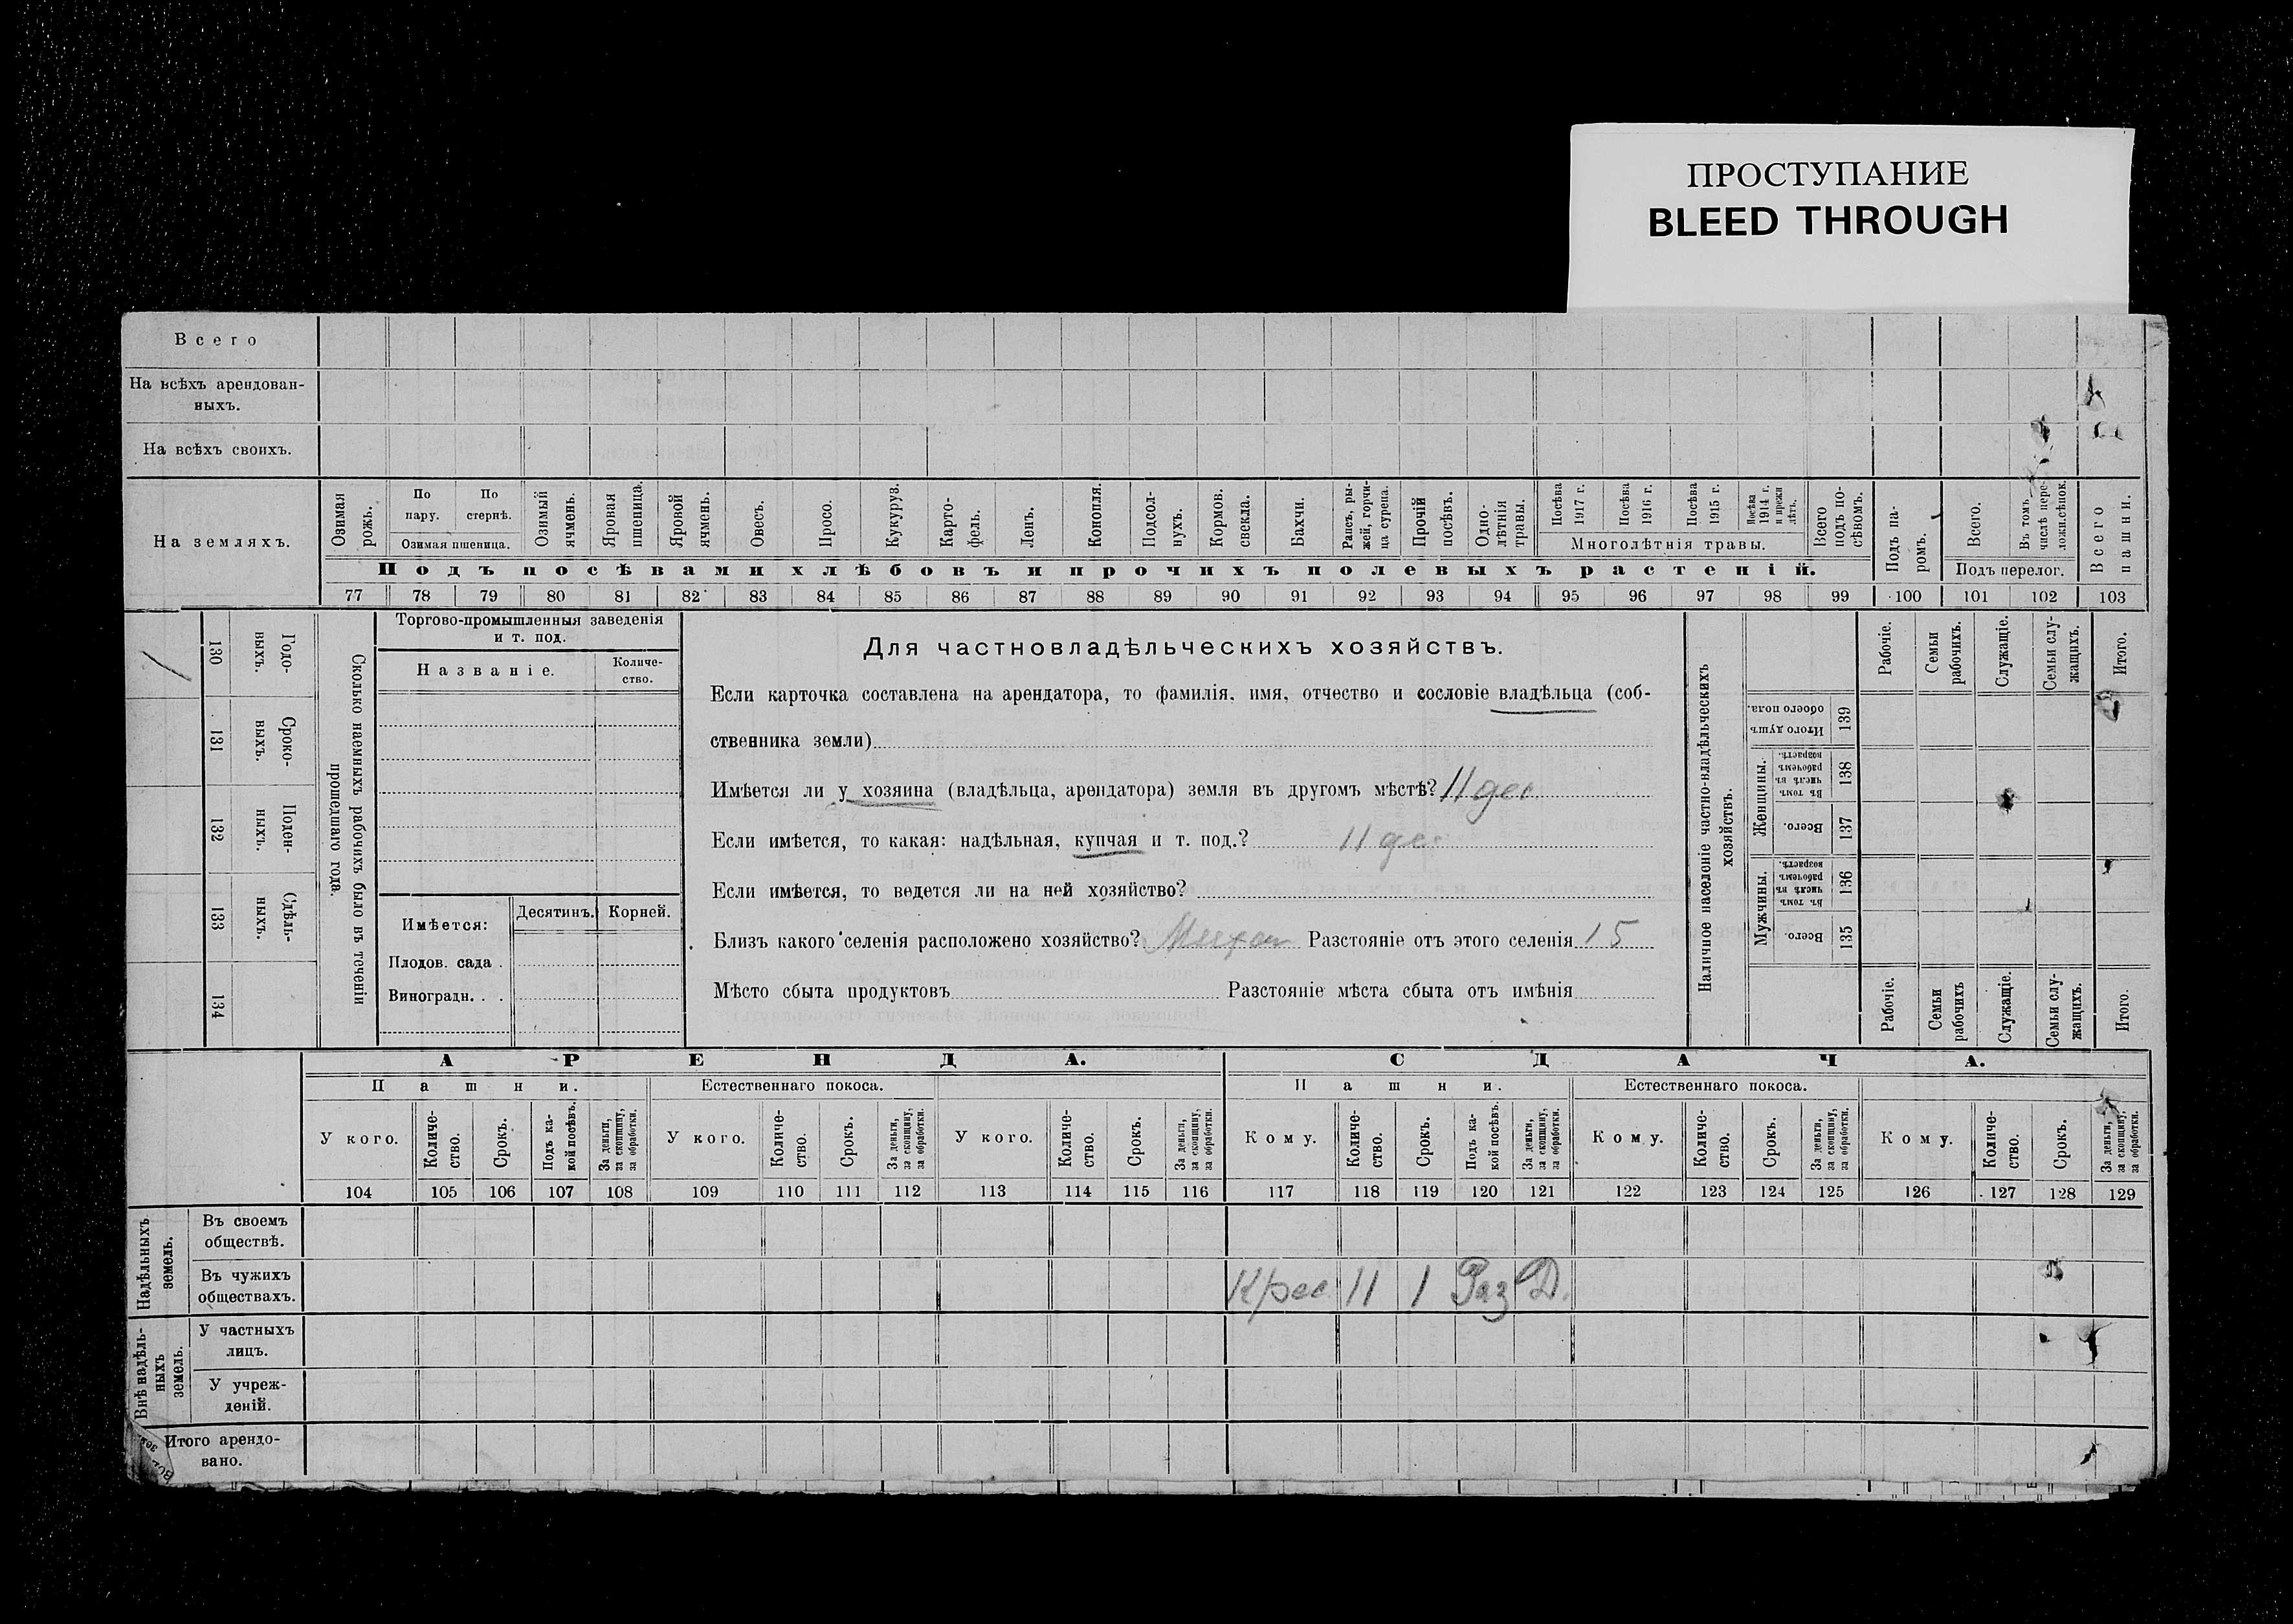 ПРОСТУПАНИЕ
BLEED THROUGH
Всего
На всѣхъ арендован-
ныхъ.
На всѣхъ своихъ.
На земляхъ.
Озимая рожь.
По пару.
По стернѣ.
Озимая пшеница.
Озимый ячмень.
Яровая пшеница.
Яровой ячмень.
Овесъ.
Просо.
Кукуруз.
Карто-
фель.
Ленъ.
Конопля.
Подсол-
нухъ.
Кормов. свекла.
Бахчи.
Рапсъ, ры-
жей, горчи-
ца сурепа.
Прочій посѣвъ.
Одно-
лѣтнія травы.
Посѣва 1917 г.
Посѣва 1916 г.
Посѣва 1915 г.
Посѣва 1914 г. и прежн лѣтъ.
Многолѣтнія травы.
Всего подъ по-
сѣвомъ.
Подъ посѣвами хлѣбовъ и прочихъ полевыхъ растеній.
Подъ па-
ромъ.
Всего.
Въ томъ числѣ пере-
ложн.сѣнок.
Подъ перелог.
Всего пашни.
77 78 79 80 81 82 83 84 85 86 87 88 89 90 91 92 93 94 95 96 97 98 99 100 101 102 103
130 Годо-
выхъ.
131 Сроко-
ныхъ.
132 Поден-
ныхъ.
133 Сдѣль-
ныхъ.
134
Сколько наемныхъ рабочихъ было въ теченіи
прошедшаго года.
Торгово-промышленныя заведенія
и т. под.
Названіе.
Количе-
ство.
Имѣется:
Десятинъ.
Корней.
Плодов. сада .
Виноградн. . .
Для частновладѣльческихъ хозяйствъ.
Если карточка составлена на арендатора, то фамилія, имя, отчество и сословіе владѣльца (соб-
ственника земли)
Имѣется ли у хозяина (владѣльца, арендатора) земля въ другомъ мѣстѣ? 11 дес
Если имѣется, то какая: надѣльная, купчая и т. под.? 11 дес
Если имѣется, то ведется ли на ней хозяйство?
Близъ какого селенія расположено хозяйство? Разстояніе отъ этого селенія 15
Мѣсто сбыта продуктовъ Разстояніе мѣста сбыта отъ имѣнія
Наличное населеніе частно-владѣльческихъ
хозяйствъ.
Рабочіе.
Семьи рабочихъ.
Служащіе.
Семьи слу-
жащихъ.
Итого.
Итого душъ обоего пола. 139
Женщины.
Въ томъ числѣ въ рабочемъ возрастѣ. 138
Всего. 137
Мужчины.
Въ томъ числѣ въ рабочемъ возрастѣ. 136
Всего. 135
Рабочіе.
Семьи рабочихъ
Служащіе.
Семьи слу-
жащихъ.
Итого.
АРЕНДА.
СДАЧА.
Пашни.
Естественнаго покоса.
Пашни.
Естественнаго покоса.
У кого.
Количе-
ство.
Срокъ.
Подъ ка-
кой посѣвъ.
За деньги, за скопщину, за обработки.
У кого.
Количе-
ство.
Срокъ.
За деньги, за скопщину, за обработки.
У кого.
Количе-
ство.
Срокъ.
За деньги, за скопщину, за обработки.
Кому.
Количе-
ство.
Срокъ.
Подъ ка-
кой посѣвъ.
За деньги, за скопщину, за обработки.
Кому.
Количе-
ство.
Срокъ.
За деньги, за скопщину, за обработки.
Кому.
Количе-
ство.
Срокъ.
За деньги, за скопщину, за обработки.
104 105 106 107 108 109 110 111 112 113 114 115 116 117 118 119 120 121 122 123 124 125 126 127 128 129
Надѣльныхъ земель.
Въ своемъ
обществѣ.
Въ чужихъ
обществахъ.
Крес 11 1 Раз Д.
Внѣ надѣль-
ныхъ земель.
У частныхъ
лицъ.
У учреж-
деній.
Итого арендо-
вано.